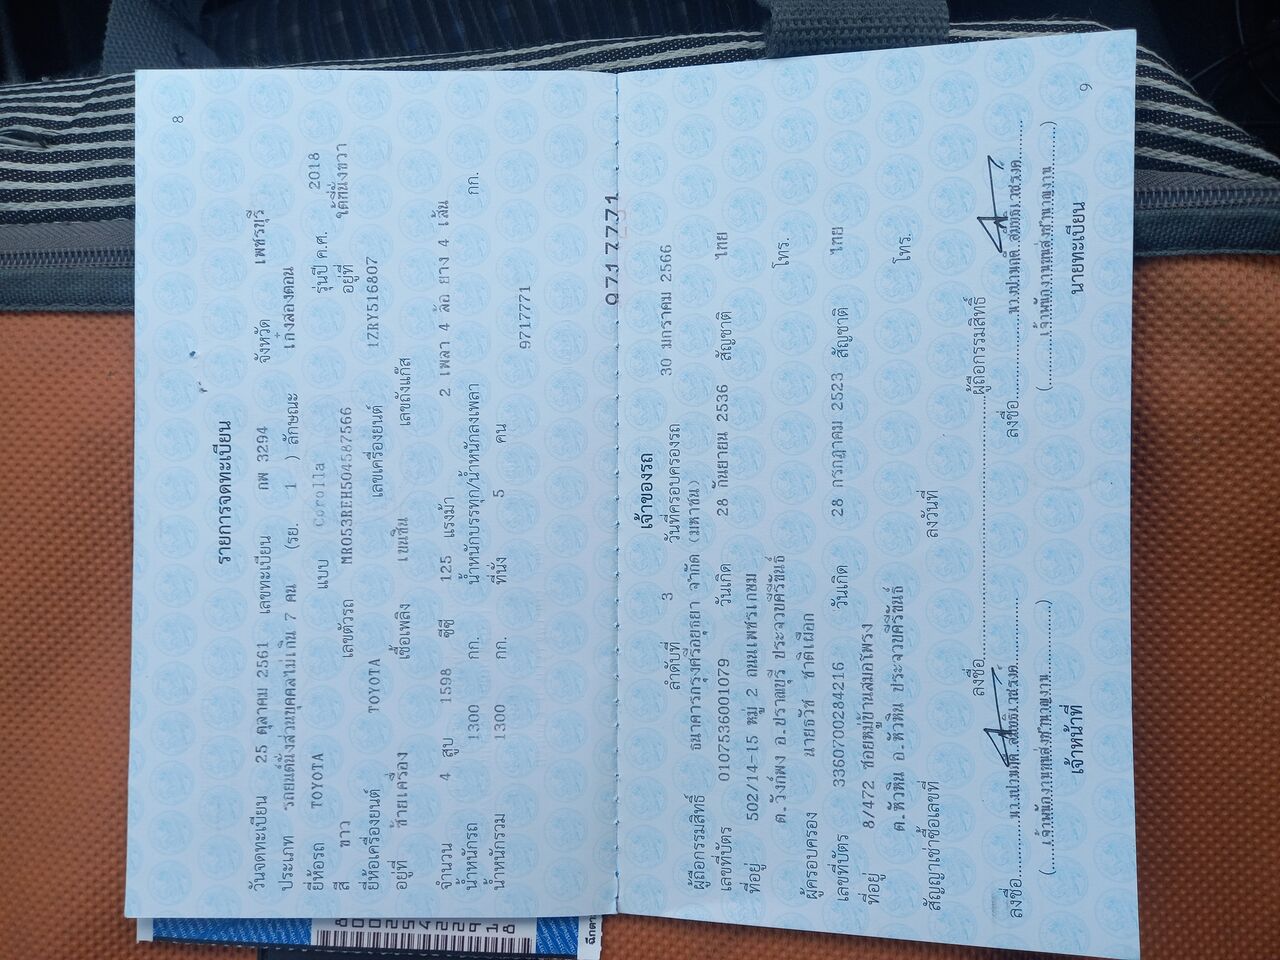 8
รายการจดทะเบียน
วันจดทะเบียน 25 ตุลาคม 2561 เลขทะเบียน กพ 3294 จังหวัด เพชรบุรี
ประเภท รถยนต์นั่งส่วนบุคคลไม่เกิน 7 คน (รย. 1 ) ลักษณะ เก๋งสองตอน
ยี่ห้อรถ TOYOTA แบบ Corolla รุ่นปี ค.ศ. 2018
สี ขาว เลขตัวรถ MR053REH504587566 อยู่ที่ ใต้ที่นั่งขวา
ยี่ห้อเครื่องยนต์ TOYOTA เลขเครื่องยนต์ 1ZRY516807
อยู่ที่ ซ้ายเครื่อง เชื้อเพลิง เบนซิน เลขถังแก๊ส
จำนวน 4 สูบ 1598 ซีซี 125 แรงม้า 2 เพลา 4 ล้อ ยาง 4 เส้น
น้ำหนักรถ 1300 กก. น้ำหนักบรรทุก/น้ำหนักลงเพลา กก.
น้ำหนักรวม 1300 กก. ที่นั่ง 5 คน
9717771
9717771
เจ้าของรถ
ลำดับที่ 3 วันที่ครอบครองรถ 30 มกราคม 2566
ผู้ถือกรรมสิทธิ์ ธนาคารกรุงศรีอยุธยา จำกัด (มหาชน)
เลขที่บัตร 0107536001079 วันเกิด 28 กันยายน 2536 สัญชาติ ไทย
ที่อยู่ 502/14-15 หมู่ 2 ถนนเพชรเกษม
ต.วังก์พง อ.ปราณบุรี ประจวบคีรีขันธ์ โทร.
ผู้ครอบครอง นายธวัช ชาติเผือก
เลขที่บัตร 3360700284216 วันเกิด 28 กรกฎาคม 2523 สัญชาติ ไทย
ที่อยู่ 8/472 ซอยหมู่บ้านสมอโพรง
ต.หัวหิน อ.หัวหิน ประจวบคีรีขันธ์ โทร.
สัญญาเช่าซื้อเลขที่ ลงวันที่
ลงชื่อ ผู้ถือกรรมสิทธิ์
ลงชื่อ ลงชื่อ
(เจ้าพนักงานขนส่งชำนาญงาน) (เจ้าพนักงานขนส่งชำนาญงาน)
เจ้าหน้าที่ นายทะเบียน
9